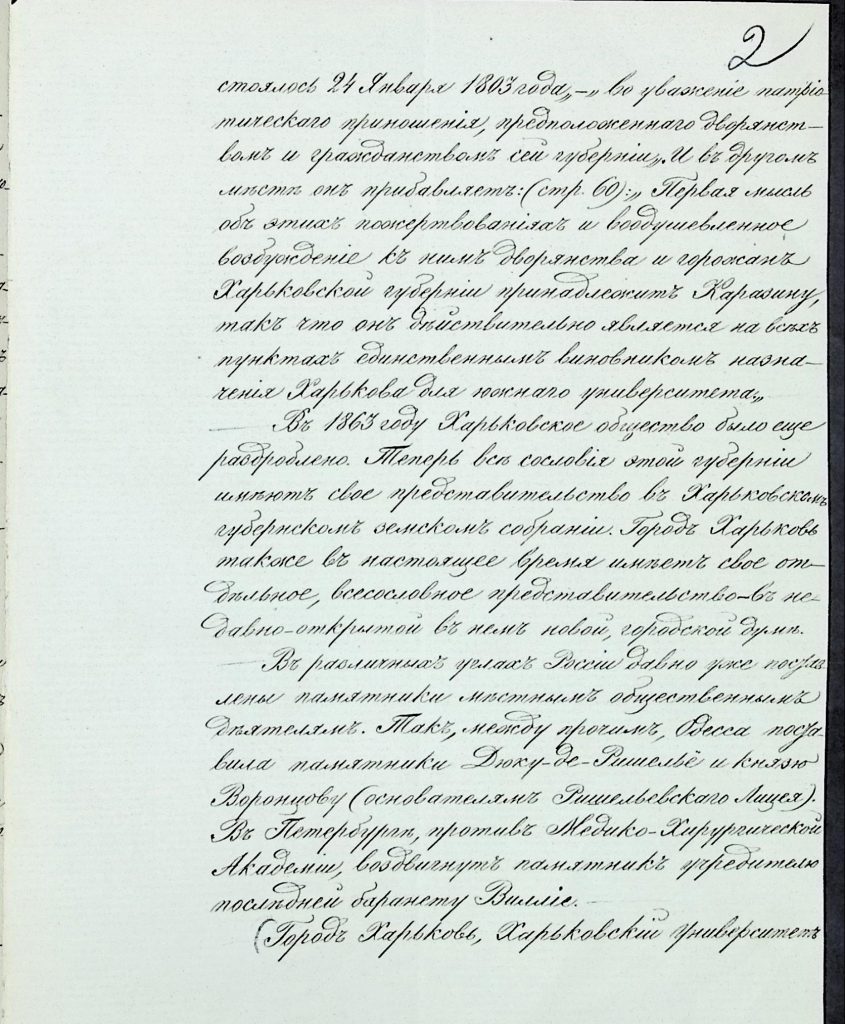 2
стоялось 24 Января 1803 года„—„ во уваженіе патріо
тическаго приношенія, предположеннаго дворянст—
вомъ и гражданствомъ сей губерніи„. И въ другомъ
мѣстѣ онъ прибавляетъ: (стр. 60):„ Первая мысль
объ этихъ пожертвованіяхъ и воодушевленное
возбужденіе къ нимъ дворянства и горожанъ
Харьковской губерніи принадлежитъ Каразину,
такъ что онъ дѣйствительно является на всѣхъ
пунктахъ единственнымъ виновникомъ назна—
ченія Харькова для южнаго университета„.
Въ 1863 году Харьковское общество было еще
раздроблено. Теперь всѣ сословія этой губерніи
имѣютъ свое представительство въ Харьковскомъ
губернскомъ земскомъ собраніи. Городъ Харьковъ
также въ настоящее время имѣетъ свое от—
дѣльное, всесословное представительство—въ не-
давно-открытой въ немъ новой, городской думѣ.
Въ различныхъ углахъ Россіи давно уже постав
лены памятники мѣстнымъ общественнымъ
дѣятелямъ. Такъ, между прочимъ, Одесса поста-
вила памятники Дюку-де-Ришельё и князю
Воронцову (основателямъ Ришельевскаго Лицея).
Въ Петербургѣ, противъ Медико-Хирургической
Академіи, воздвигнутъ памятникъ учредителю
послѣдней баранету Вилліе. —
(Городъ Харьковъ, Харьковскій Университетъ